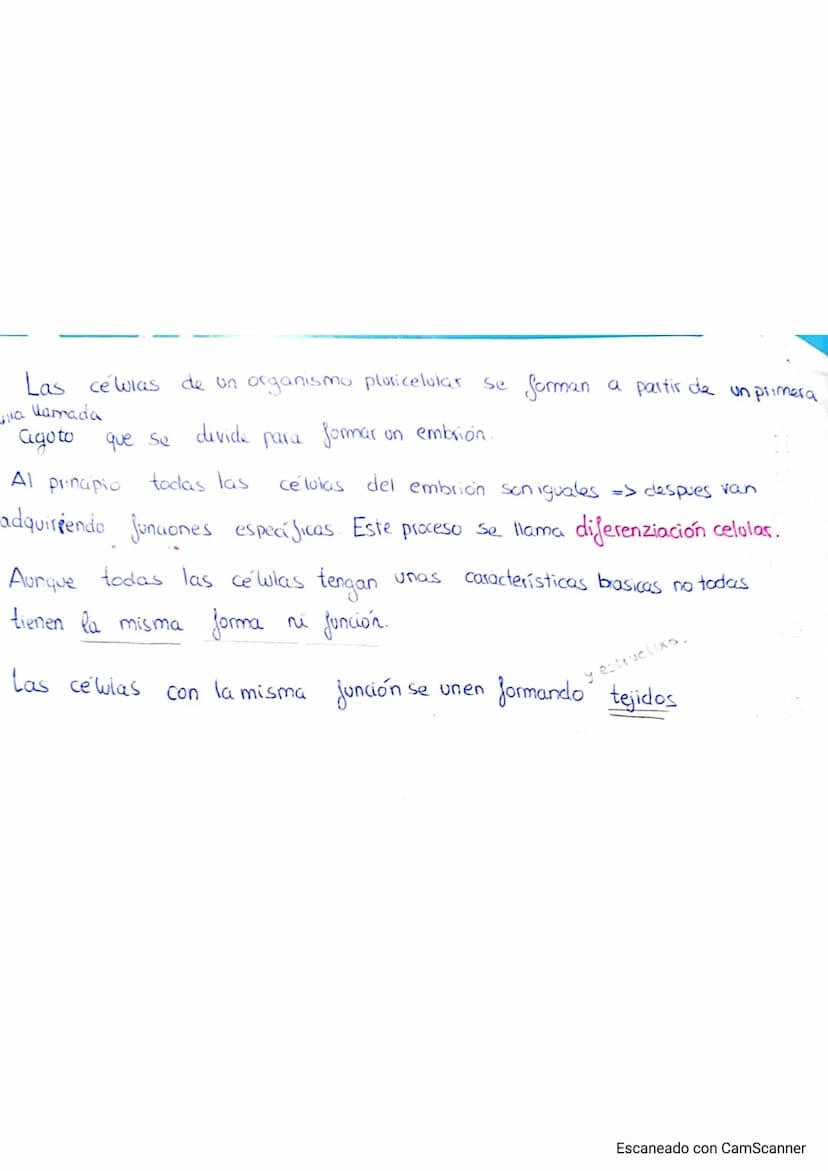 Las células de un organismo pluricelular se forman a partir de un primera
llamada
Cigoto que se divide para formar un embrión.
Al principio todas las células del embrión son iguales => despues van
adquiriendo funciones específicas. Este proceso se llama diferenziación celular.
Aunque todas las células tengan unas características basicas no todas
tienen la misma forma ni función.
y estructura.
Las células con la misma función se unen formando tejidos
Escaneado con CamScanner